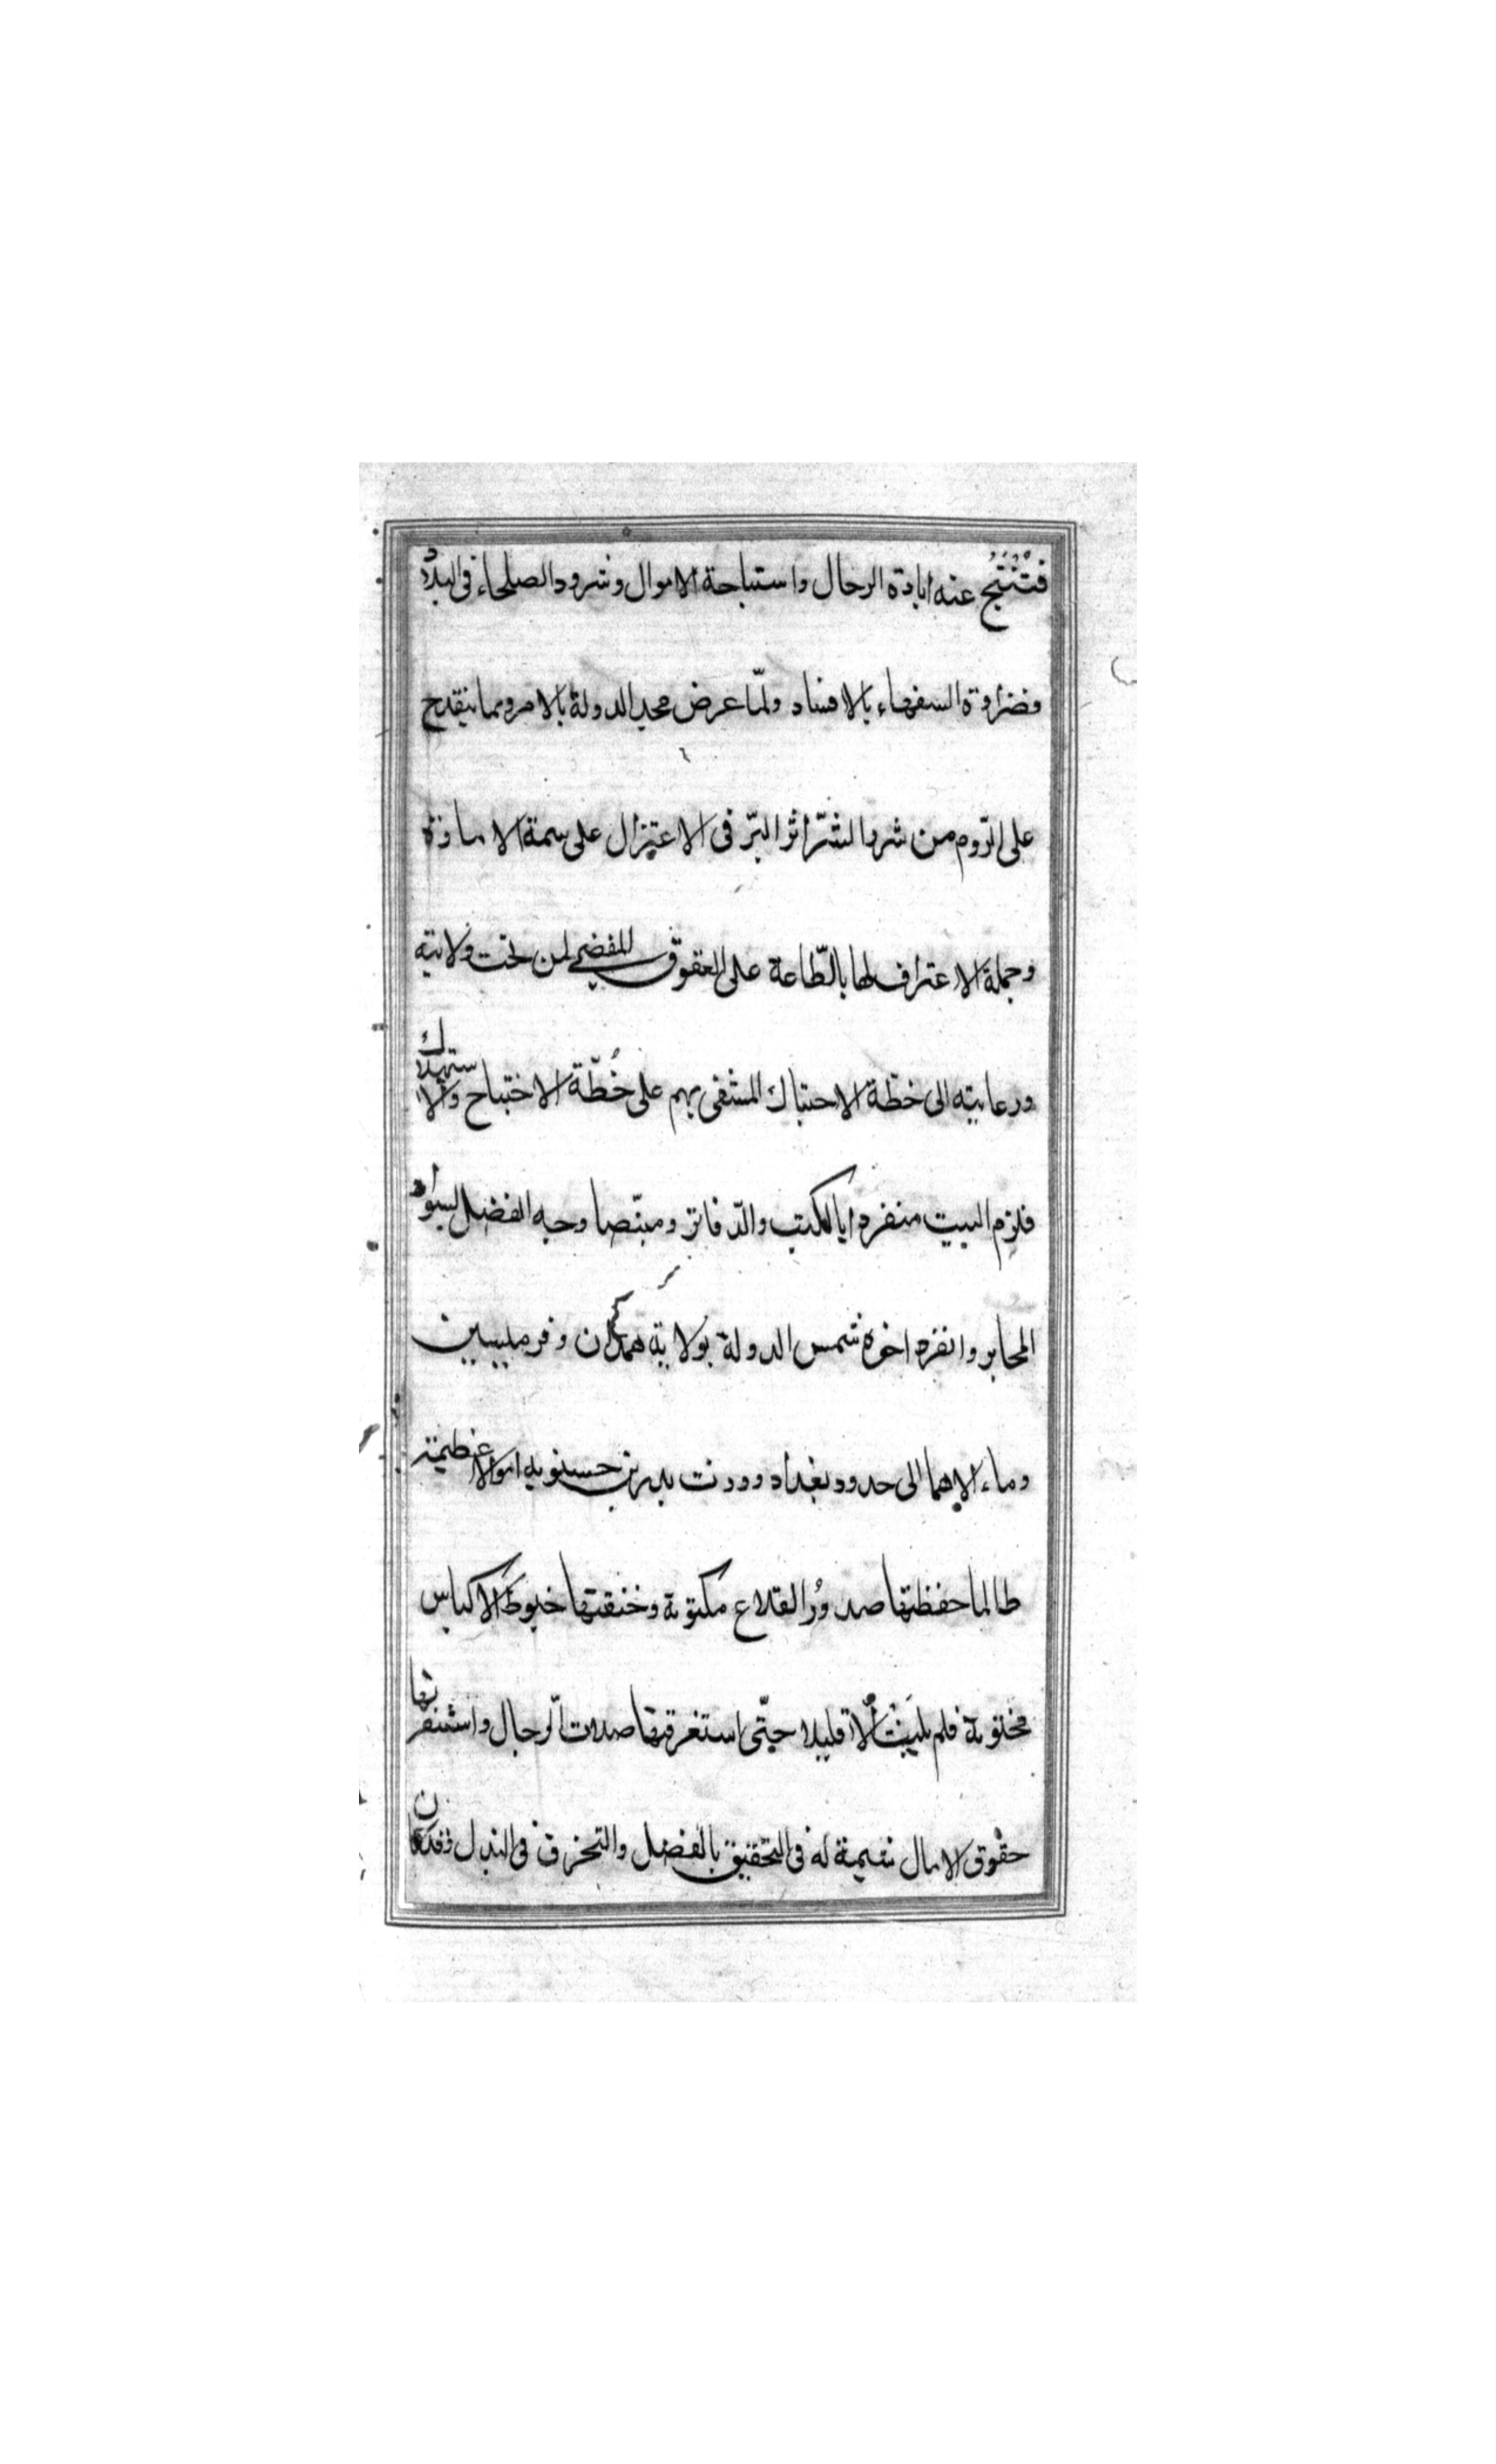 فتُنْتَجُ عنه ابادة الرجال واستباحة الاموال وشرود الصلحاء فى البلاد
وضراوة السفهاء بالافساد ولمّا عرض مجد الدولة بالامر وبما ينقدح
على الرّوم من شرر الشرّ اثر البرّ فى الاعتزال على سمة الامارة
وجملة الاعتراف لها بالطّاعة على العقوق المفضى لمن تحت ولايته
ورعايته الى خطّة الاحتباك المشفى بهم على خُطّة الاجتياح والاستهلاك
فلزم البيت منفردا بالكتب والدّفاتر ومبيّضا وجه الفضل بسواد
المحابر وانفرد اخوه شمس الدولة بولاية همدان وقرميسين
وما والاهما الى حدود بغداد وورث بدر بن حسنويه اموالا عظيمة
طالما حفظتها صدورُ القلاع مكتومة وخنقتها خيوط الاكياس
مختومة فلم يلبَثْ الّا قليلا حتّى استغرقتها صلات الرّجال واستنفرتها
حقوق الامال نقيمة له فى التحقيق بالفضل والتخرق فى البذل وقدكان